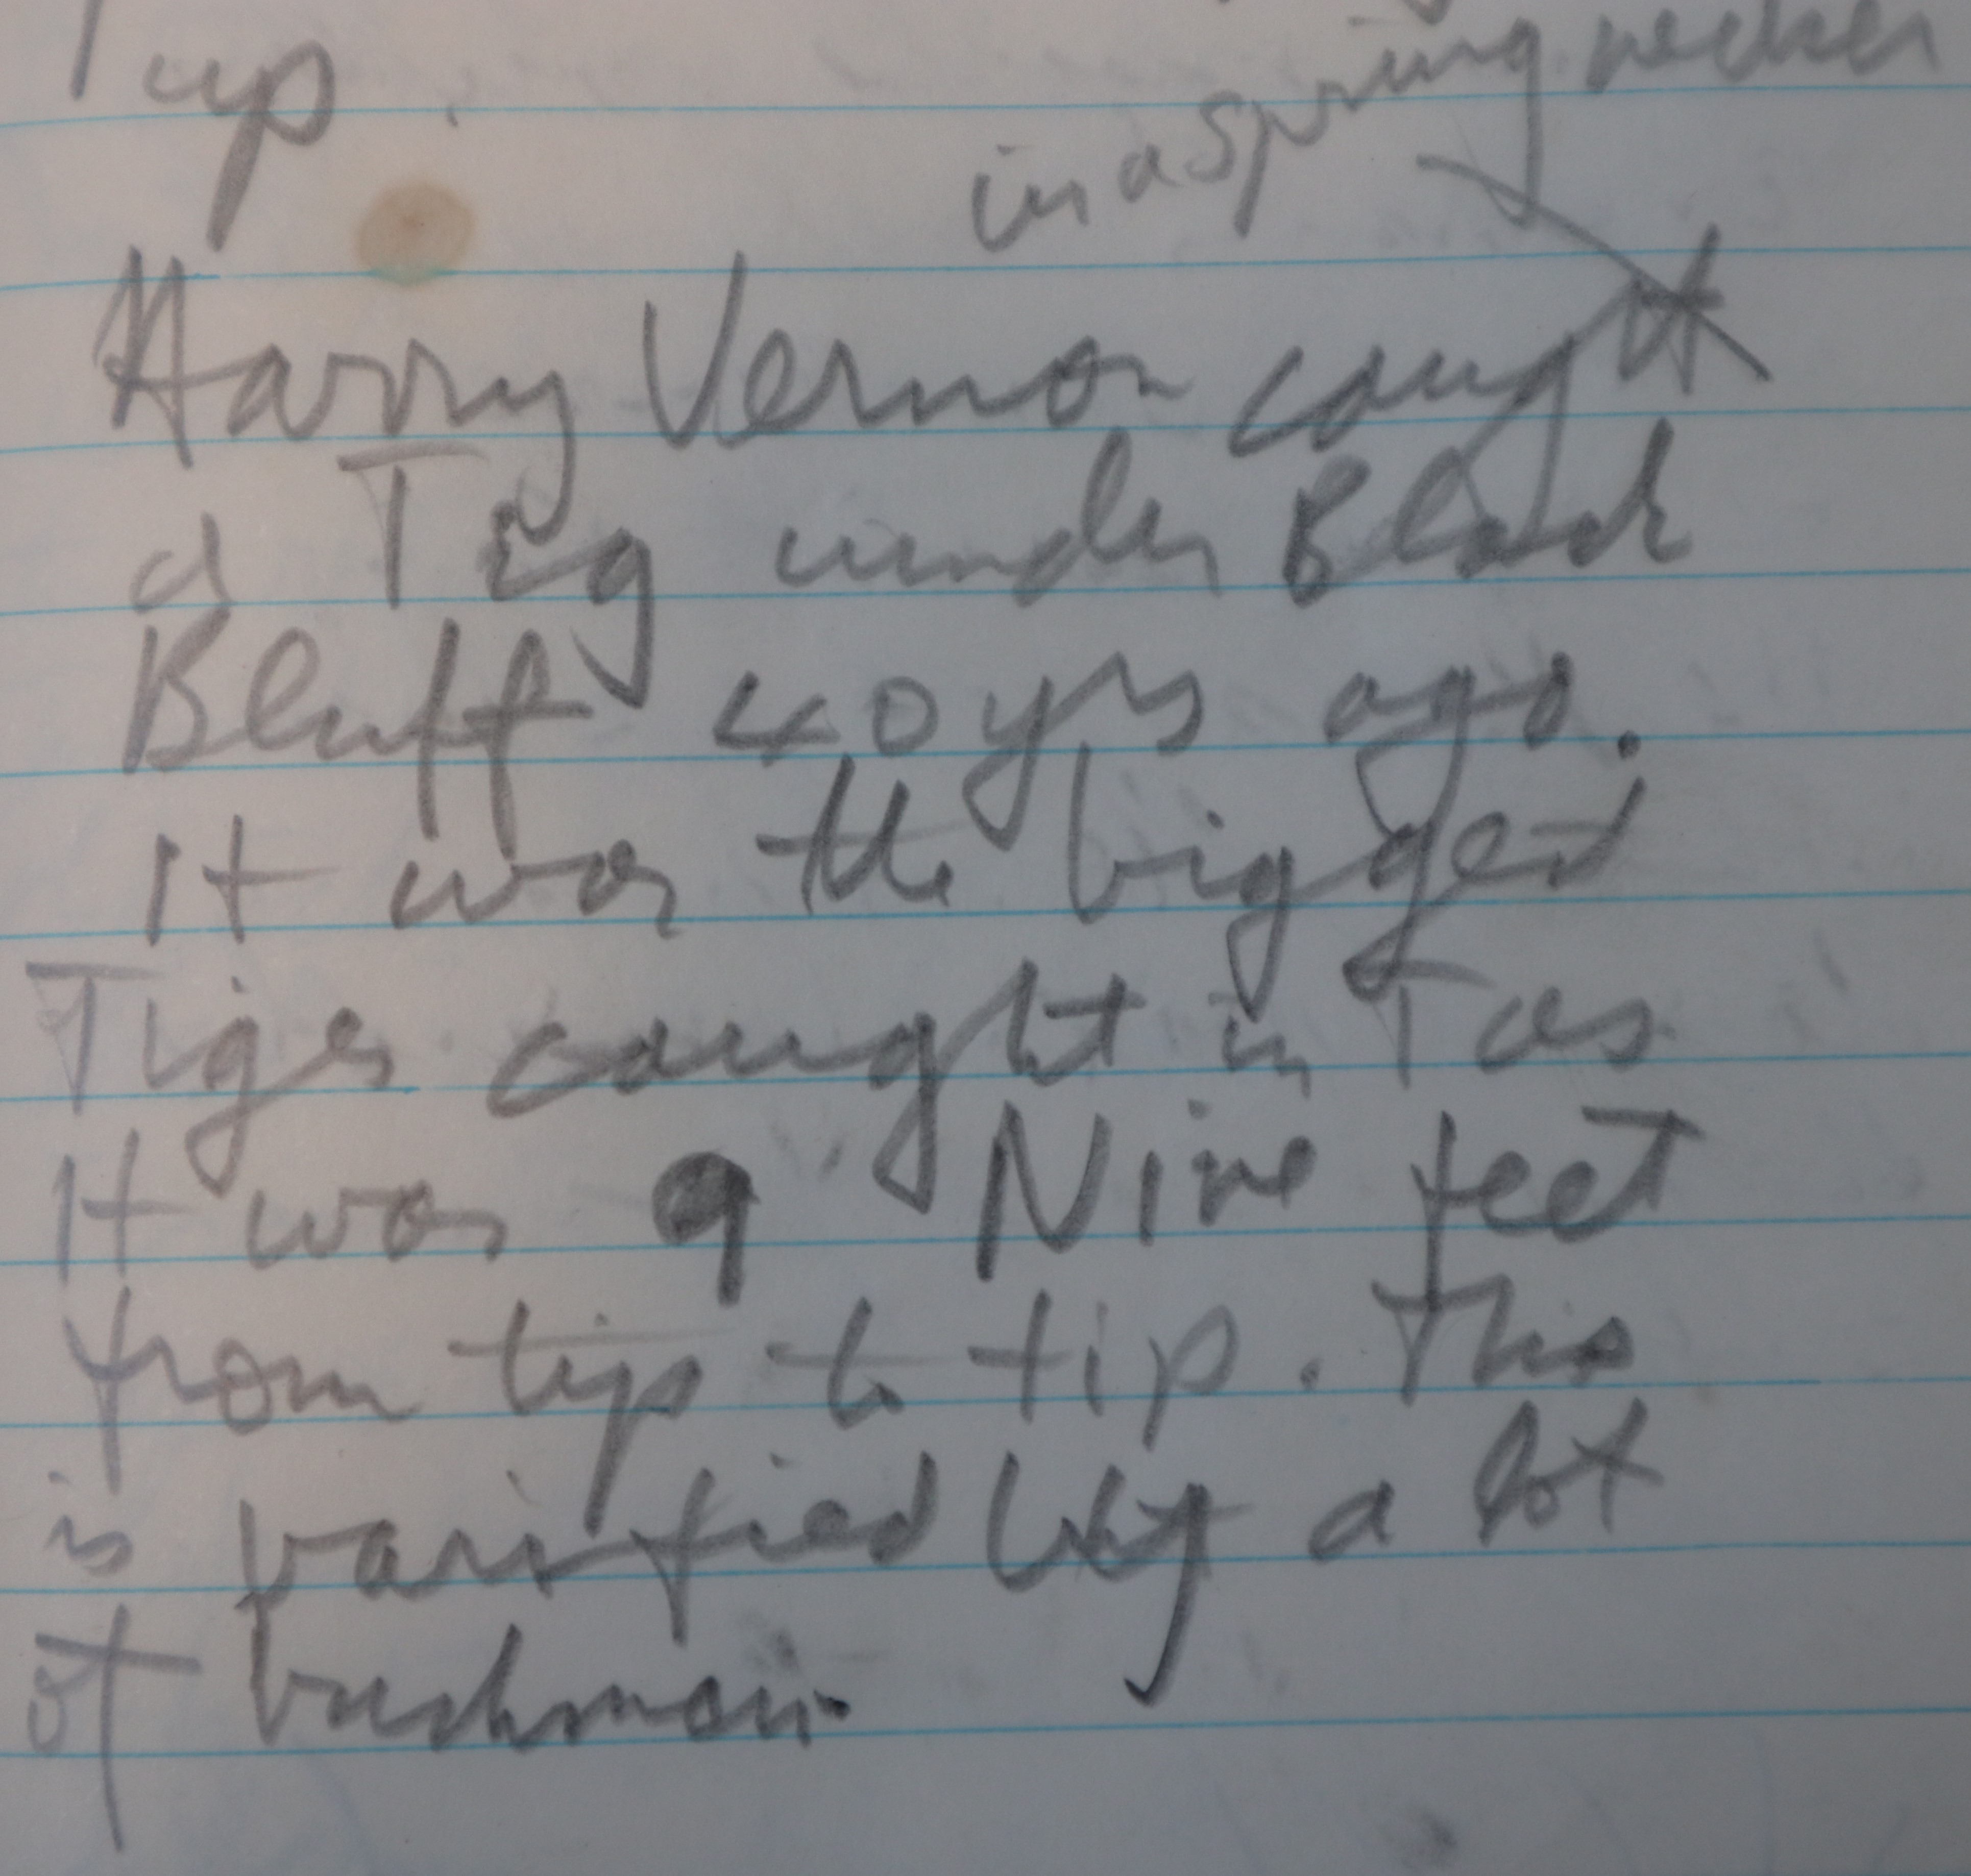 up.
in a spring necker
Harry Vernon caught
a Tig under Black
Bluff 40 yrs ago.
It was the biggest
Tiger caught in Tas
It was 9 Nine feet
from tip to tip. This
is varified by a lot
of bushman.